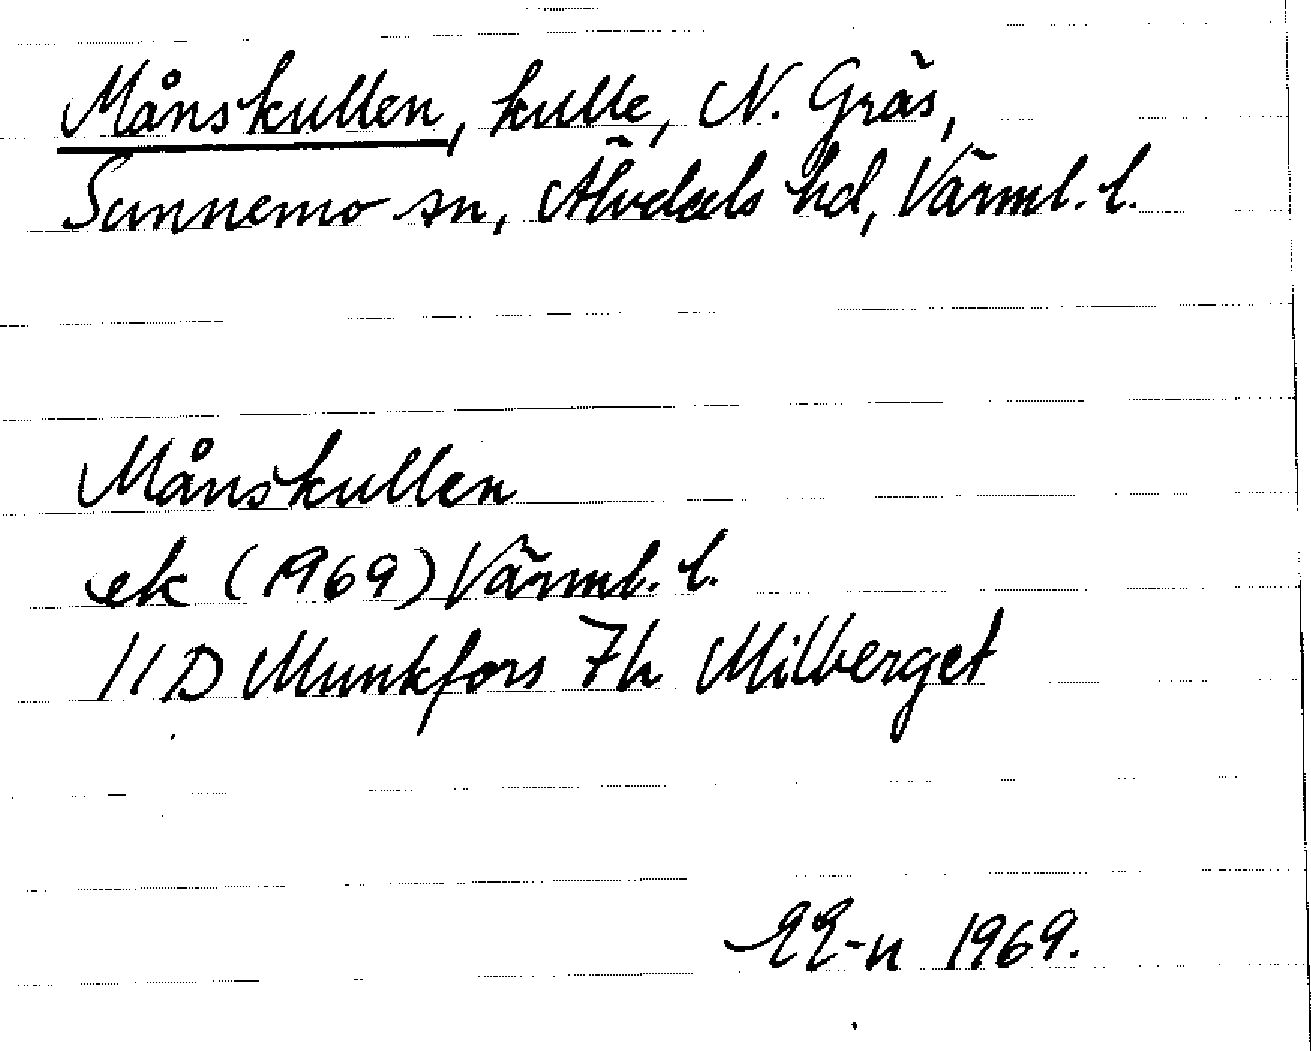 Månskullen, kulle, N. Gräs,
Sunnemo sn, Älvdals hd, Värml. l.
Månskullen
ek (1969) Värml. l.
11D Munkfors 7h Milberget
EE-n 1969.